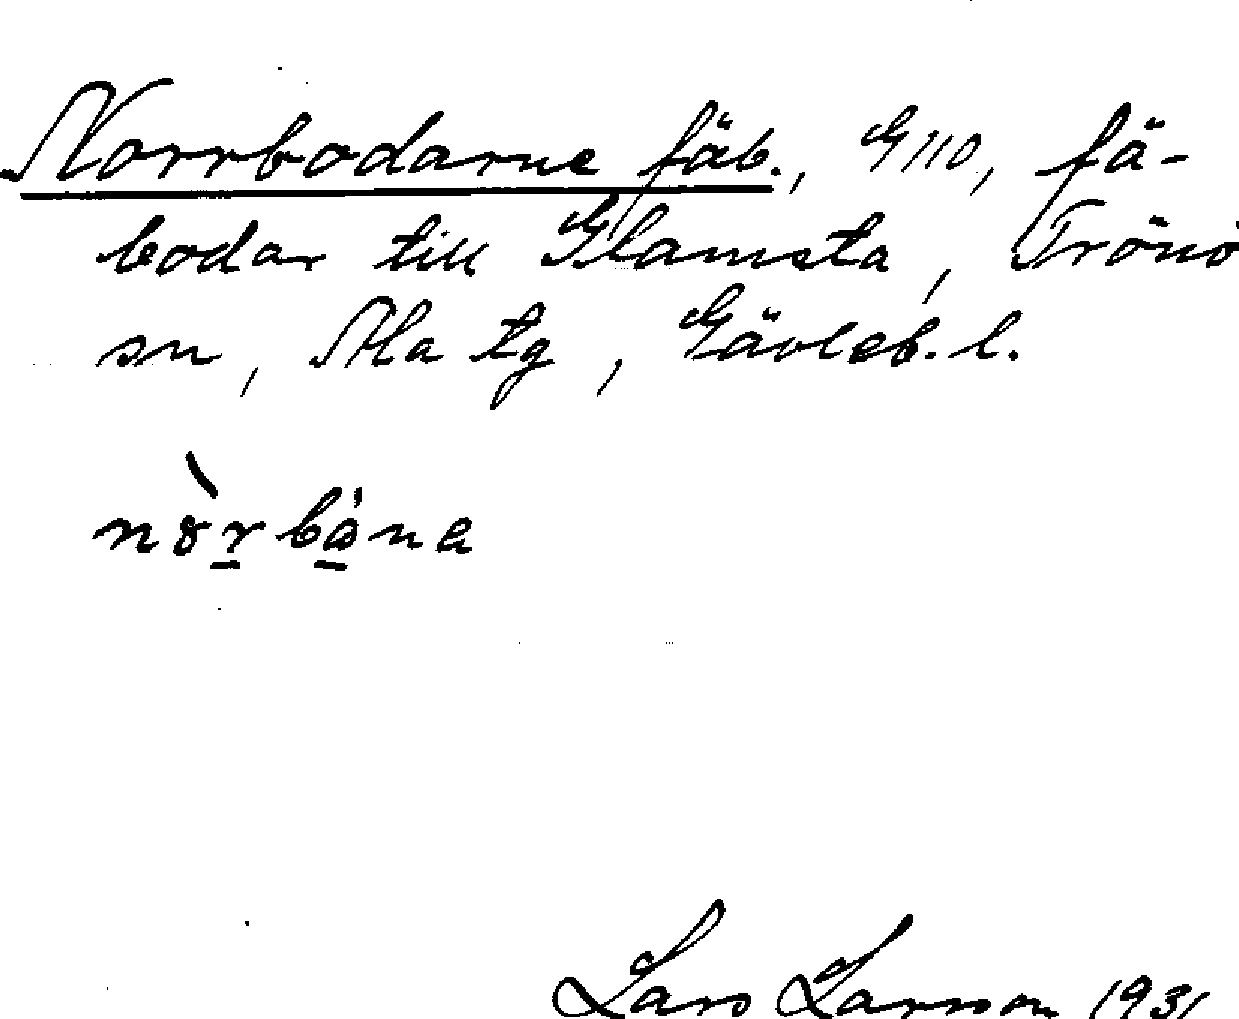 Norrbodarne fäb., G110, fä-
bodar till Glamsta, Trönö
sn, Ala tg, Gävleb. l.
Lars Larsson 1931